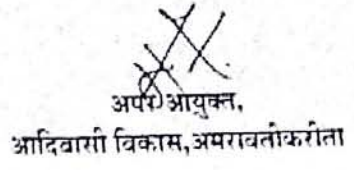 अपर आयुक्त,
आदिवासी विकास,अमरावतीकरीता